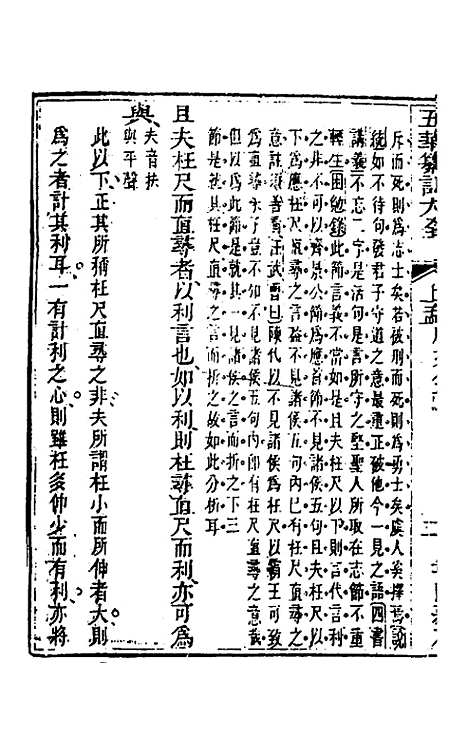 五華纂訂大全　上孟
斥而死則爲志士矣若被刑而死則爲勇士矣虞人奚擇焉說
統如不待句發君子守道之意最重正破他今一見之語四書
講義不忘二字是活句是言所守之堅聖人所取在志節不重
輕生困勉錄此節言義不當如是且夫枉尺以下則言代言利
之非不可以齊景公節爲應首節不見諸侯五句且夫枉尺以
下爲應枉尺直尋之言益不見諸侯五句內已有枉尺直尋之
意註意看汪武曹曰陳代以不見諸侯爲枉尺以霸王可致
爲直尋朱子豈不知不見諸侯五句內卽有枉尺直尋之意哉
但以爲此節是就其一見諸侯之言而折之下三
節是就其枉尺直尋之言而折之故如此分析耳
且夫枉尺而直尋者以利言也如以利則枉尋直尺而利亦可爲
與　夫音扶　與平聲
此以下正其所稱枉尺直尋之非夫所謂枉小而所伸者大則
爲之者計其利耳一有計利之心則雖枉多伸少而有利亦將